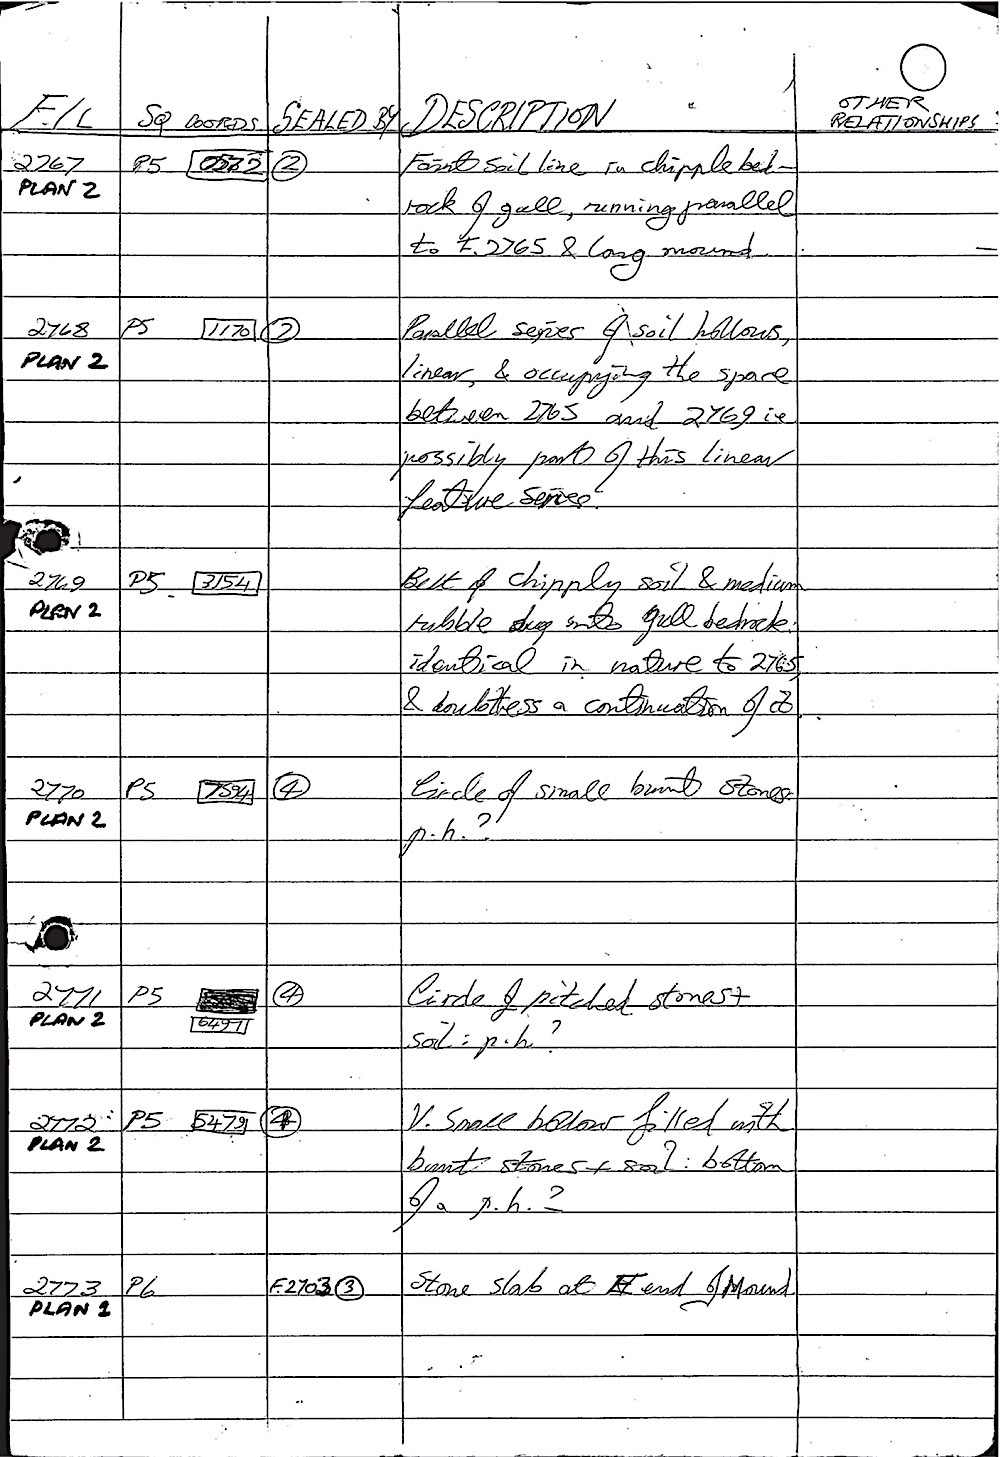 F/L SQ COORDS SEALED BY DESCRIPTION OTHER RELATIONSHIPS
2767 P5 ② Faint soil line in chipple bed-
PLAN 2 rock of gull, running parallel
to F.2765 & long mound
2768 P5 1170 ② Parallel series of soil hollows,
PLAN 2 linear, & occupying the space
between 2765 and 2769 ie
possibly part of this linear
feature series.
2769 P5 3154 Belt of chipply soil & medium
PLAN 2 rubble dug into gull bedrock:
identical in nature to 2765,
& doubtless a continuation of it.
2770 P5 7594 ④ Circle of small burnt stones:
PLAN 2 p.h.?
2771 P5 ④ Circle of pitched stones +
PLAN 2 6497 soil: p.h?
2772 P5 5479 ④ V. Small hollow filled with
PLAN 2 burnt stones + soil: bottom
of a p.h.?
2773 P6 F.2703 ③ Stone slab at end of Mound
PLAN 1